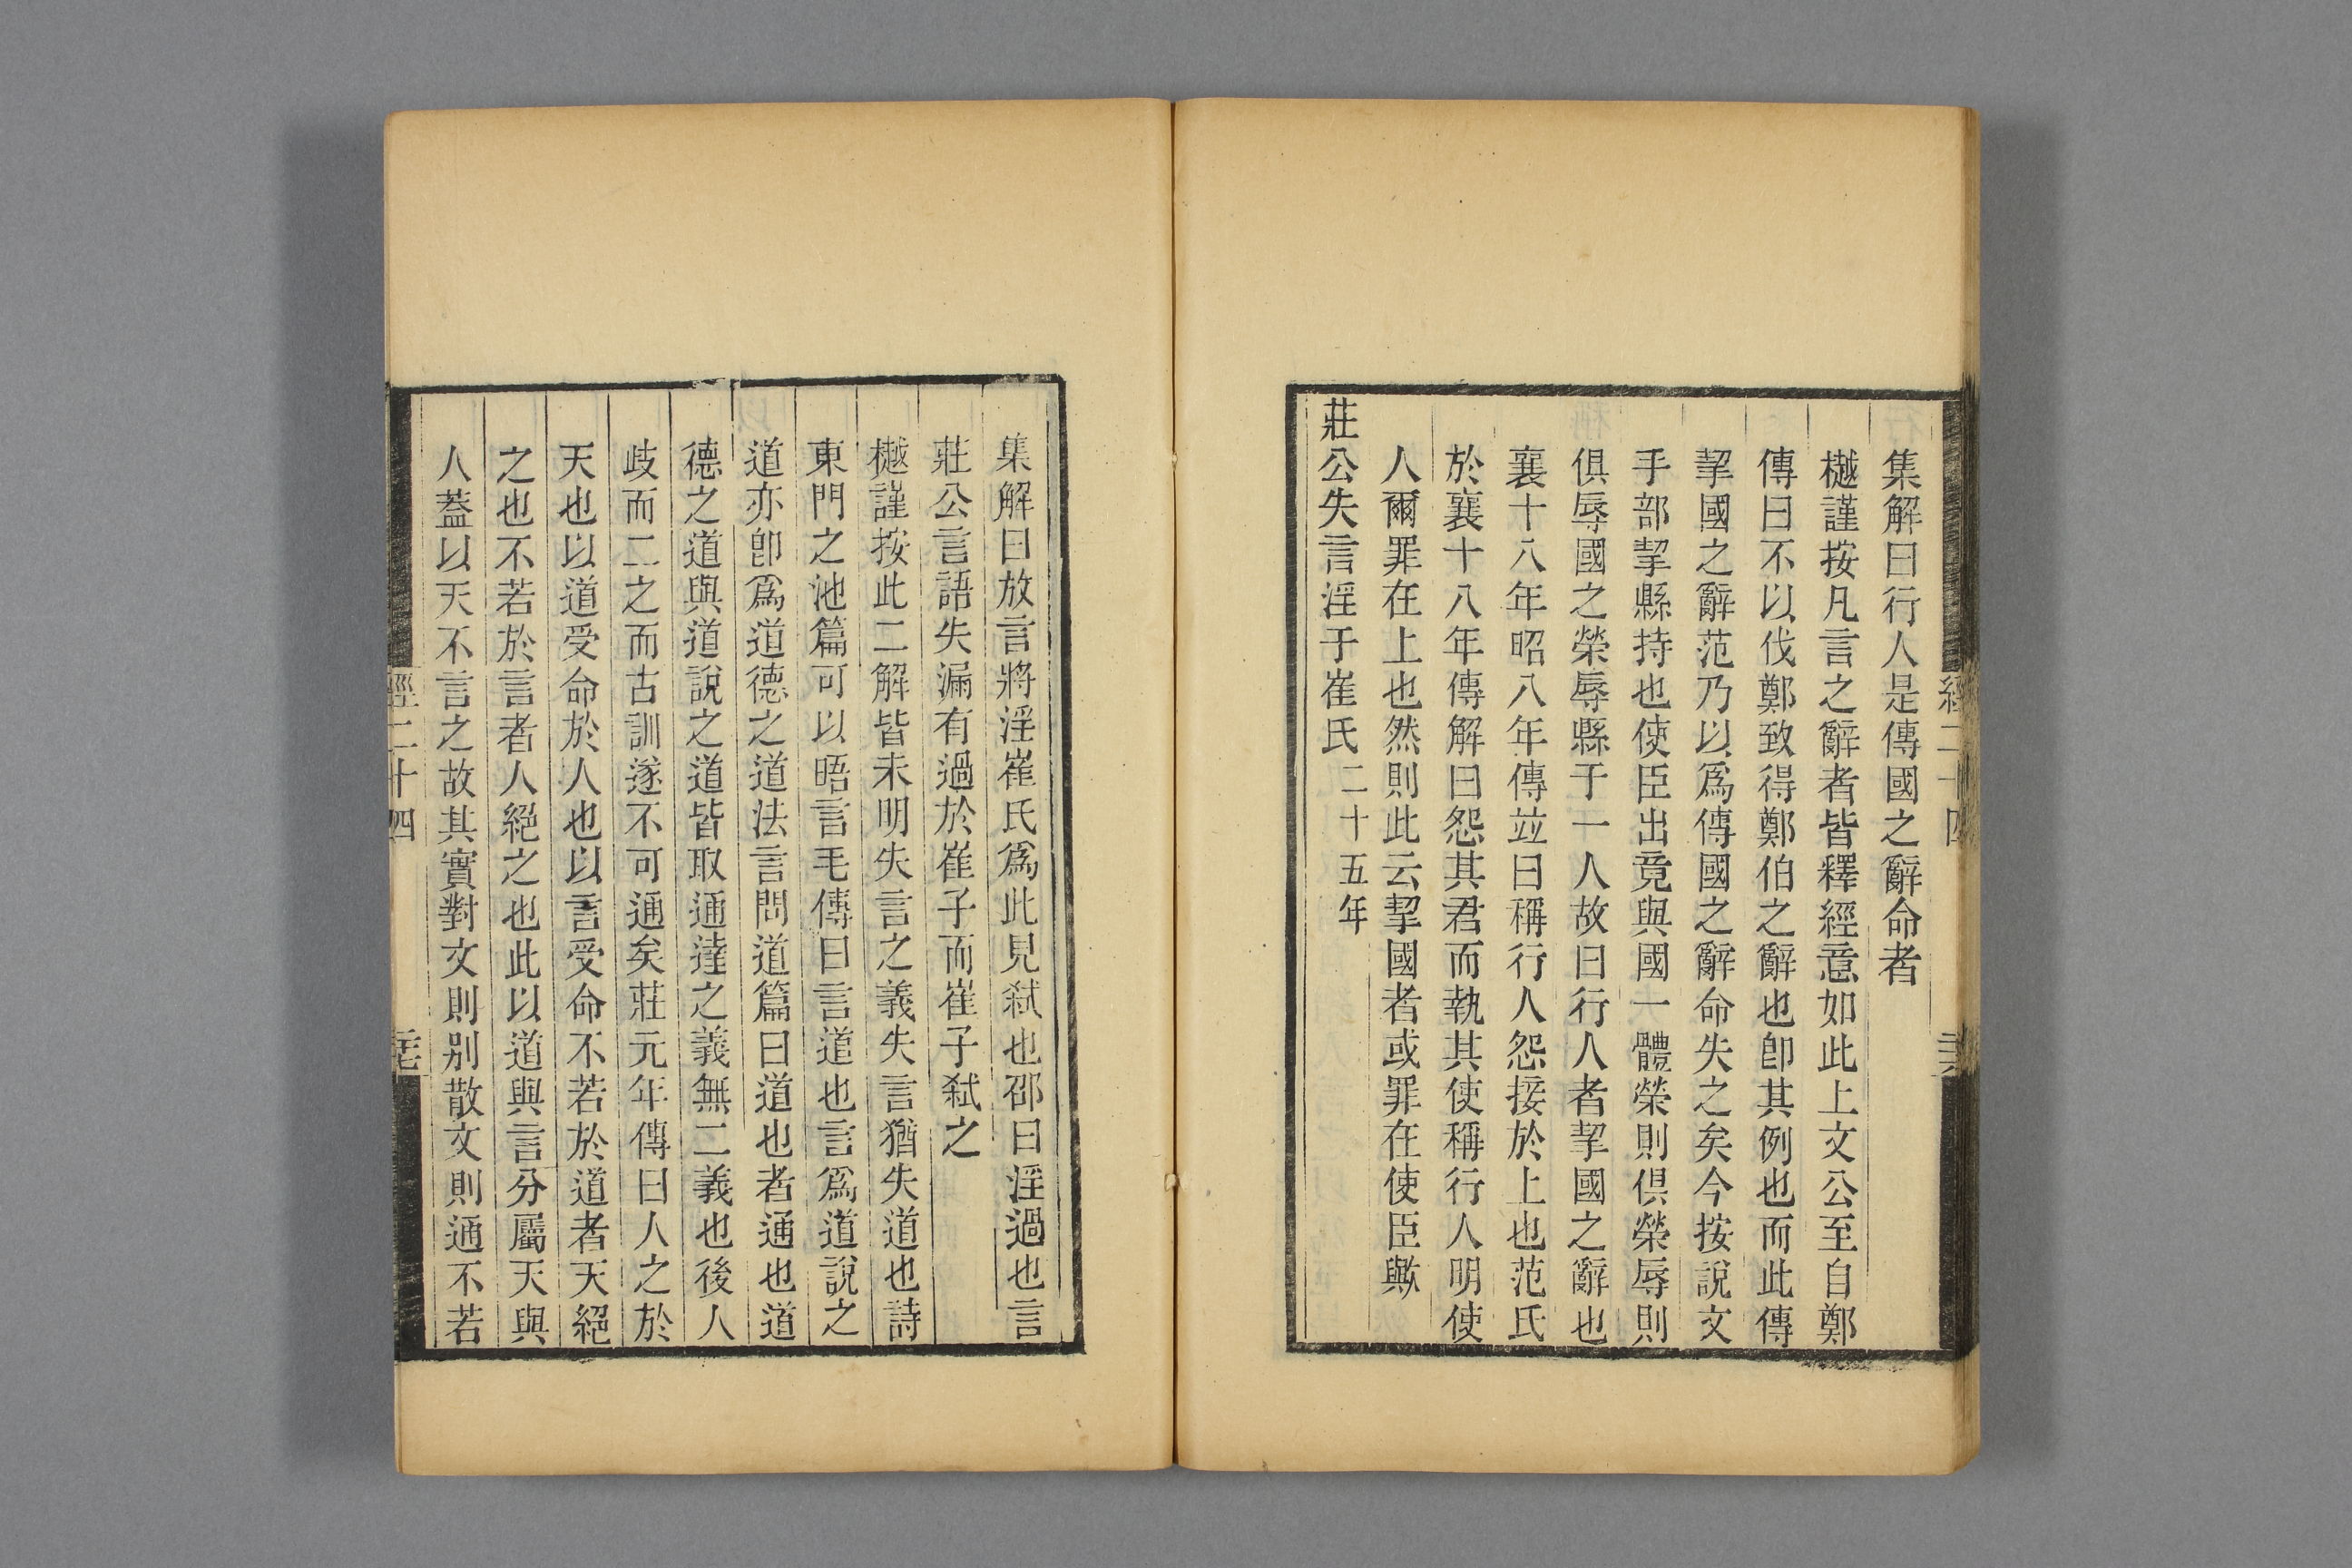 集解曰行人是傳國之辭命者
樾謹按凡言之辭者皆釋經意如此上文公至自鄭
傳曰不以伐鄭致得鄭伯之辭也卽其例也而此傳
挈國之辭范乃以爲傳國之辭命失之矣今按說文
手部挈縣持也使臣出竟與國一體榮則俱榮辱則
俱辱國之榮辱縣于一人故曰行人者挈國之辭也
襄十八年昭八年傳竝曰稱行人怨接於上也范氏
於襄十八年傳解曰怨其君而執其使稱行人明使
人爾罪在上也然則此云挈國者或罪在使臣歟
莊公失言淫于崔氏二十五年
集解曰放言將淫崔氏爲此見弒也邵曰淫過也言
莊公言語失漏有過於崔子而崔子弒之
樾謹按此二解皆未明失言之義失言猶失道也詩
東門之池篇可以晤言毛傳曰言道也言爲道說之
道亦卽爲道德之道法言問道篇曰道也者通也道
德之道與道說之道皆取通達之義無二義也後人
歧而二之而古訓遂不可通矣莊元年傳曰人之於
天也以道受命於人也以言受命不若於道者天絕
之也不若於言者人絕之也此以道與言分屬天與
人蓋以天不言之故其實對文則别散文則通不若
經二十四